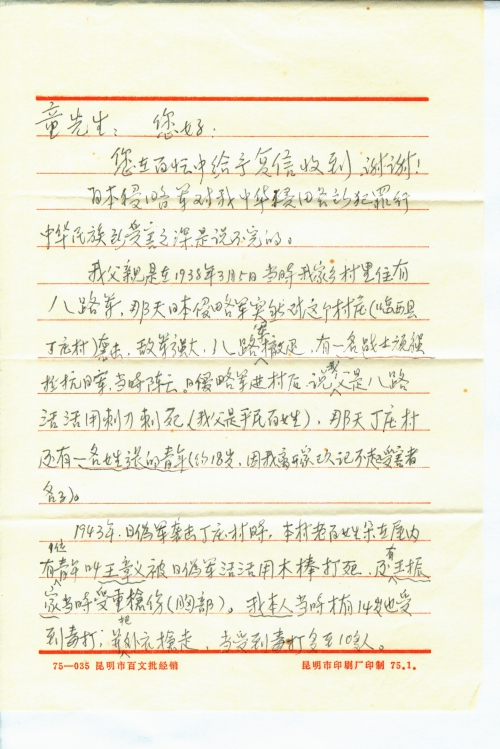 童先生：您好：
您在百忙中给予复信收到，谢谢！
日本侵略军对我中华侵略的犯罪行
中华民族所受害之深是说不完的。
我父亲是在1938年3月5日当时我家乡村里住有
八路军，那天日本侵略军突然对这个村庄（临西县
丁庄村）袭击，敌军强大，八路军撤退，有一名战士顽强
抵抗日军，当时阵亡。日侵略军进村后说我父是八路
活活用刺刀刺死（我父是平民百姓），那天丁庄村
还有一名姓张的青年（约18岁，因我离开家久记不起受害者
名字）。
1943年，日伪军袭击丁庄村时，本村老百姓呆在屋内
有1位青年叫王章义被日伪军活活用木棒打死，还有王振
家当时受重枪伤（胸部）。我本人当时才有14岁也受
到毒打；并把外衣抢走，当受到毒打多至10多人。
75—035 昆明市百文批经销 昆明市印刷厂印制 75.1.